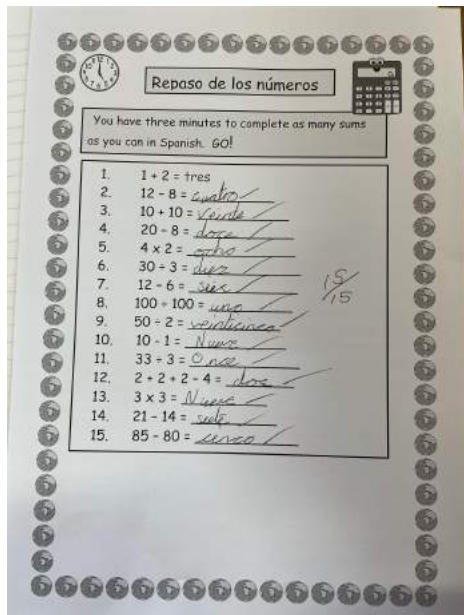 Repaso de los números
You have three minutes to complete as many sums
as you can in Spanish. GO!
1. 1 + 2 = tres
2. 12 - 8 = cuatro
3. 10 + 10 = veinte
4. 20 - 8 = doce
5. 4 x 2 = ocho
6. 30 ÷ 3 = diez
7. 12 - 6 = seis
8. 100 ÷ 100 = uno
9. 50 ÷ 2 = veinticinco
10. 10 - 1 = Nueve
11. 33 ÷ 3 = Once
12. 2 + 2 + 2 - 4 = dos
13. 3 x 3 = Nueve
14. 21 - 14 = siete
15. 85 - 80 =
15/15